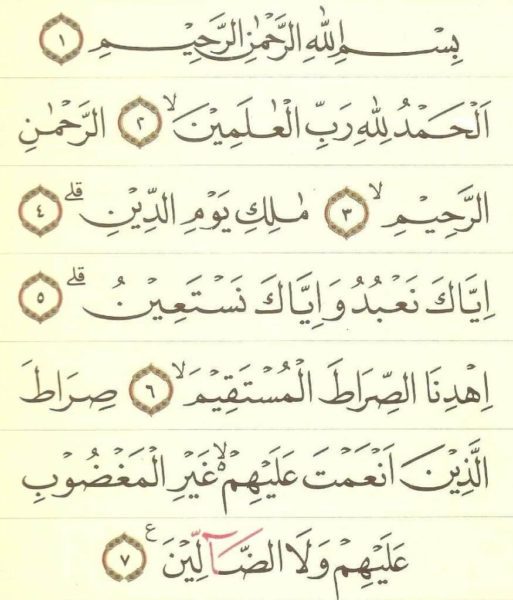 بِسْمِ اللّٰهِ الرَّحْمٰنِ الرَّحِيْمِ ١
اَلْحَمْدُ لِلّٰهِ رَبِّ الْعٰلَمِيْنَ ۙ ٢ الرَّحْمٰنِ
الرَّحِيْمِ ۙ ٣ مٰلِكِ يَوْمِ الدِّيْنِ ۗ ٤
اِيَّاكَ نَعْبُدُ وَاِيَّاكَ نَسْتَعِيْنُ ۗ ٥
اِهْدِنَا الصِّرَاطَ الْمُسْتَقِيْمَ ۙ ٦ صِرَاطَ
الَّذِيْنَ اَنْعَمْتَ عَلَيْهِمْ ۙ۬ غَيْرِ الْمَغْضُوْبِ
عَلَيْهِمْ وَلَا الضَّاۤلِّيْنَ ࣖ ٧